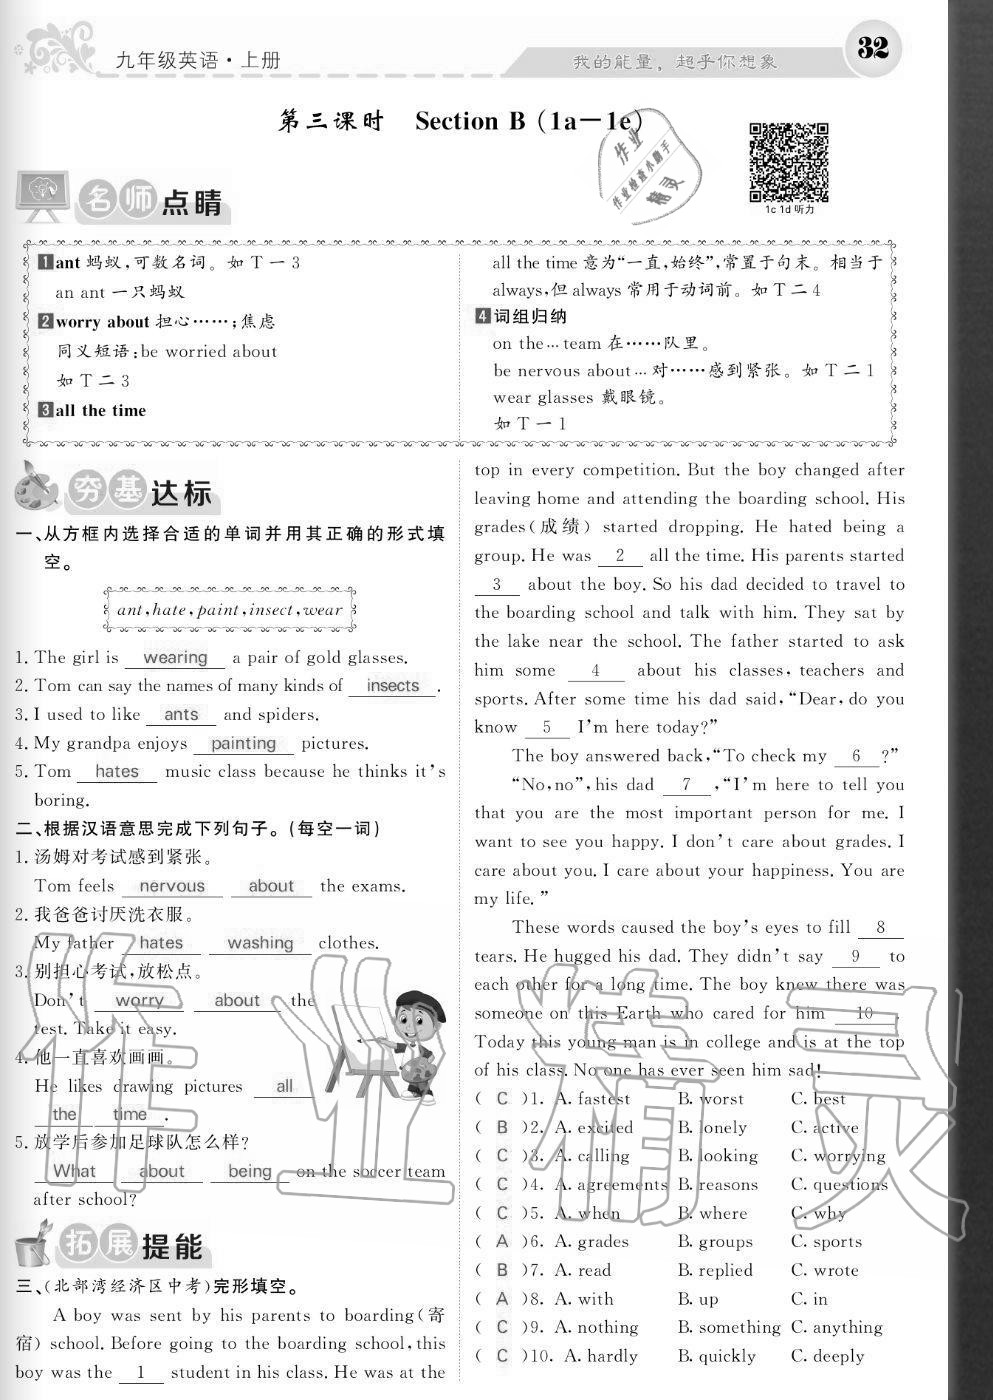 九年级英语·上册
我的能量，超乎你想象
32
第三课时 Section B (1a—1e)
作业
作业检查小助手
精灵
1c 1d 听力
名师点睛
1 ant 蚂蚁,可数名词。如 T 一 3
an ant 一只蚂蚁
2 worry about 担心……;焦虑
同义短语:be worried about
如 T 二 3
3 all the time
all the time 意为“一直,始终”,常置于句末。相当于
always,但 always 常用于动词前。如 T 二 4
4 词组归纳
on the … team 在……队里。
be nervous about … 对……感到紧张。如 T 二 1
wear glasses 戴眼镜。
如 T 一 1
夯基达标
一、从方框内选择合适的单词并用其正确的形式填
空。
ant,hate,paint,insect,wear
1. The girl is wearing a pair of gold glasses.
2. Tom can say the names of many kinds of insects .
3. I used to like ants and spiders.
4. My grandpa enjoys painting pictures.
5. Tom hates music class because he thinks it’s
boring.
二、根据汉语意思完成下列句子。(每空一词)
1. 汤姆对考试感到紧张。
Tom feels nervous about the exams.
2. 我爸爸讨厌洗衣服。
My father hates washing clothes.
3. 别担心考试,放松点。
Don’t worry about the
test. Take it easy.
4. 他一直喜欢画画。
He likes drawing pictures all
the time .
5. 放学后参加足球队怎么样?
What about being on the soccer team
after school?
拓展提能
三、(北部湾经济区中考)完形填空。
A boy was sent by his parents to boarding(寄
宿) school. Before going to the boarding school, this
boy was the 1 student in his class. He was at the
top in every competition. But the boy changed after
leaving home and attending the boarding school. His
grades(成绩) started dropping. He hated being a
group. He was 2 all the time. His parents started
3 about the boy. So his dad decided to travel to
the boarding school and talk with him. They sat by
the lake near the school. The father started to ask
him some 4 about his classes, teachers and
sports. After some time his dad said,“Dear, do you
know 5 I’m here today?”
The boy answered back,“To check my 6 ?”
“No,no”, his dad 7 ,“I’m here to tell you
that you are the most important person for me. I
want to see you happy. I don’t care about grades. I
care about you. I care about your happiness. You are
my life.”
These words caused the boy’s eyes to fill 8
tears. He hugged his dad. They didn’t say 9 to
each other for a long time. The boy knew there was
someone on this Earth who cared for him 10 .
Today this young man is in college and is at the top
of his class. No one has ever seen him sad!
( C )1. A. fastest B. worst C. best
( B )2. A. excited B. lonely C. active
( C )3. A. calling B. looking C. worrying
( C )4. A. agreements B. reasons C. questions
( C )5. A. when B. where C. why
( A )6. A. grades B. groups C. sports
( B )7. A. read B. replied C. wrote
( A )8. A. with B. up C. in
( C )9. A. nothing B. something C. anything
( C )10. A. hardly B. quickly C. deeply
作业精灵